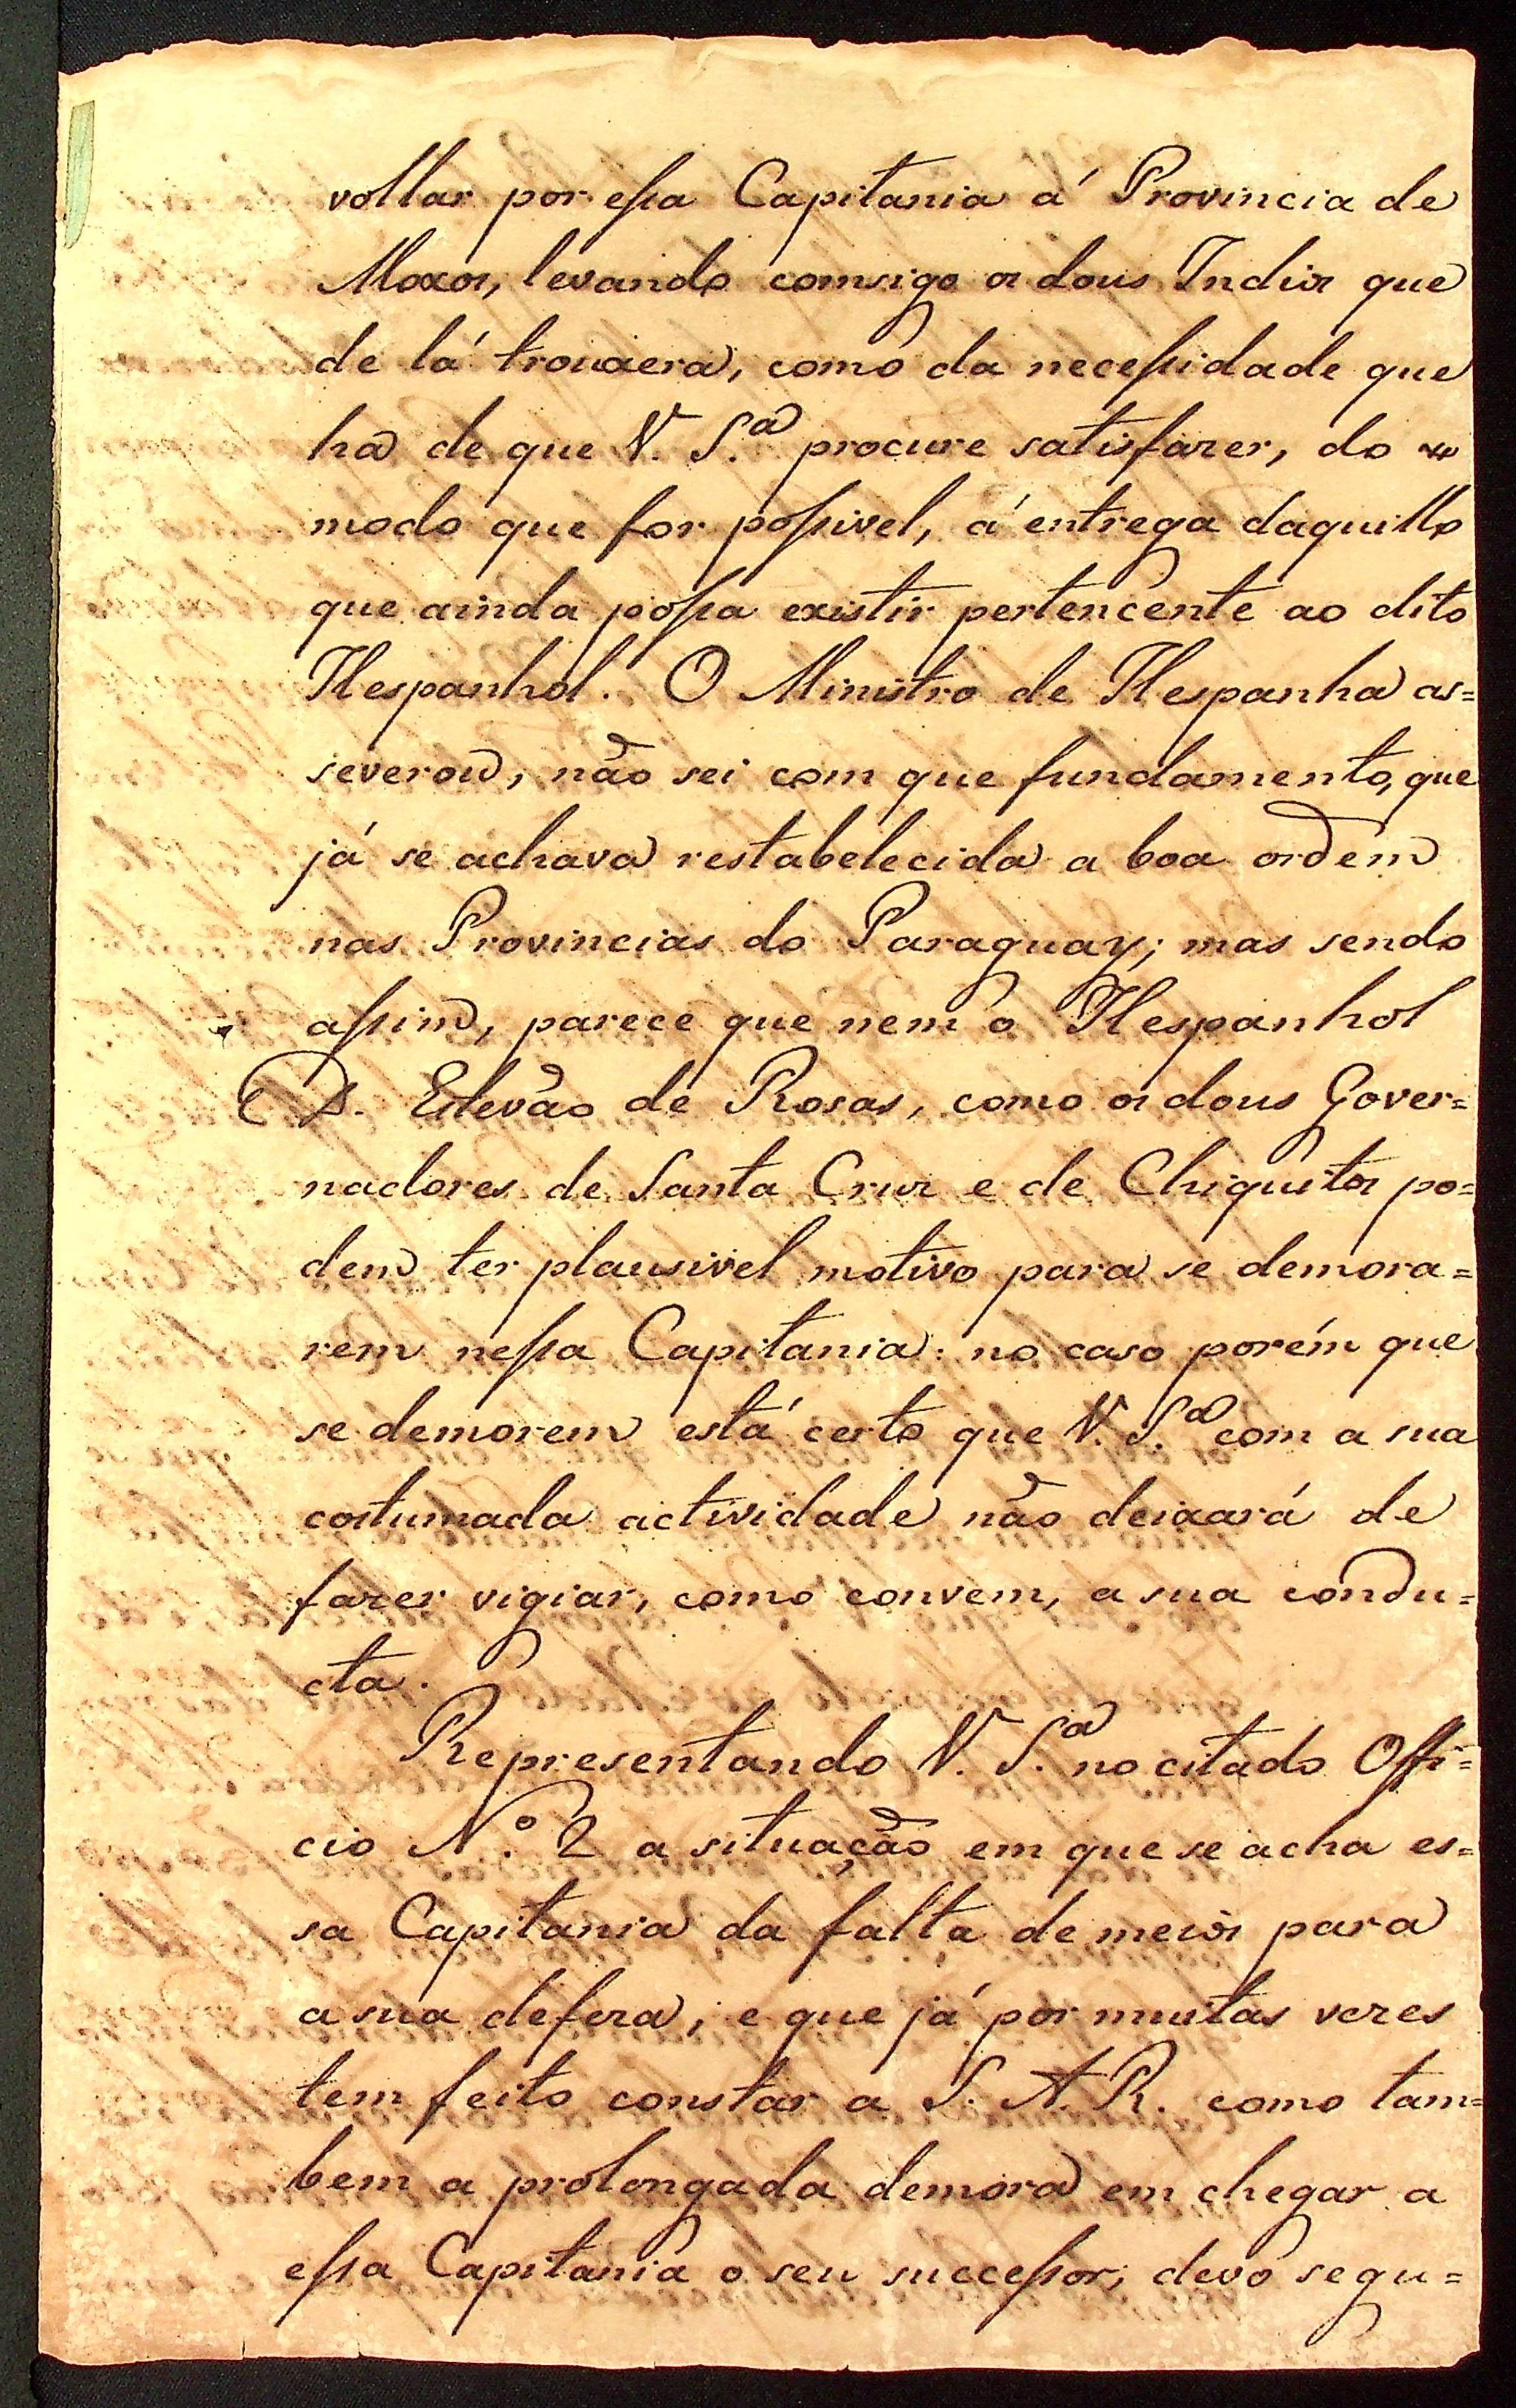 voltar por essa Capitania á Provincia de
Moxos, levando comsigo os dous Indios que
de lá trouxera, como da necessidade que
ha de que V. S.ª procure satisfazer, do
modo que for possivel, á entrega daquillo
que ainda possa existir pertencente ao dito
Hespanhol. O Ministro de Hespanha as=
severou, não sei com que fundamento, que
já se achava restabelecida a boa ordem
nas Provincias do Paraguay; mas sendo
assim, parece que nem o Hespanhol
D. Estevão de Rosas, como os dous Gover=
nadores de Santa Cruz e de Chiquitos po=
dem ter plausivel motivo para se demora=
rem nessa Capitania: no caso porém que
se demorem está certo que V. S.ª com a sua
costumada actividade não deixará de
fazer vigiar, como convem, a sua condu=
cta.
Representando V. S.ª no citado Offi=
cio N.º 2 a situação em que se acha es=
sa Capitania da falta de meios para
a sua defeza, e que já por muitas vezes
tem feito constar a S. A. R. como tam=
bem a prolongada demora em chegar a
essa Capitania o seu successor; devo segu=